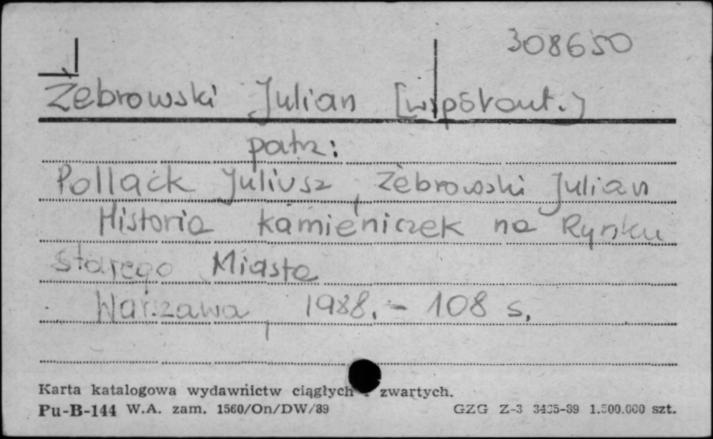 308650
Żebrowski Julian [współaut.]
patrz:
Pollack Juliusz, Żebrowski Julian
Historia kamieniczek na Rynku
starego Miasta
Warszawa, 1988. - 108 s.
Karta katalogowa wydawnictw ciągłych i zwartych.
Pu-B-144 W.A. zam. 1560/On/DW/89 GZG Z-3 3435-89 1.500.000 szt.